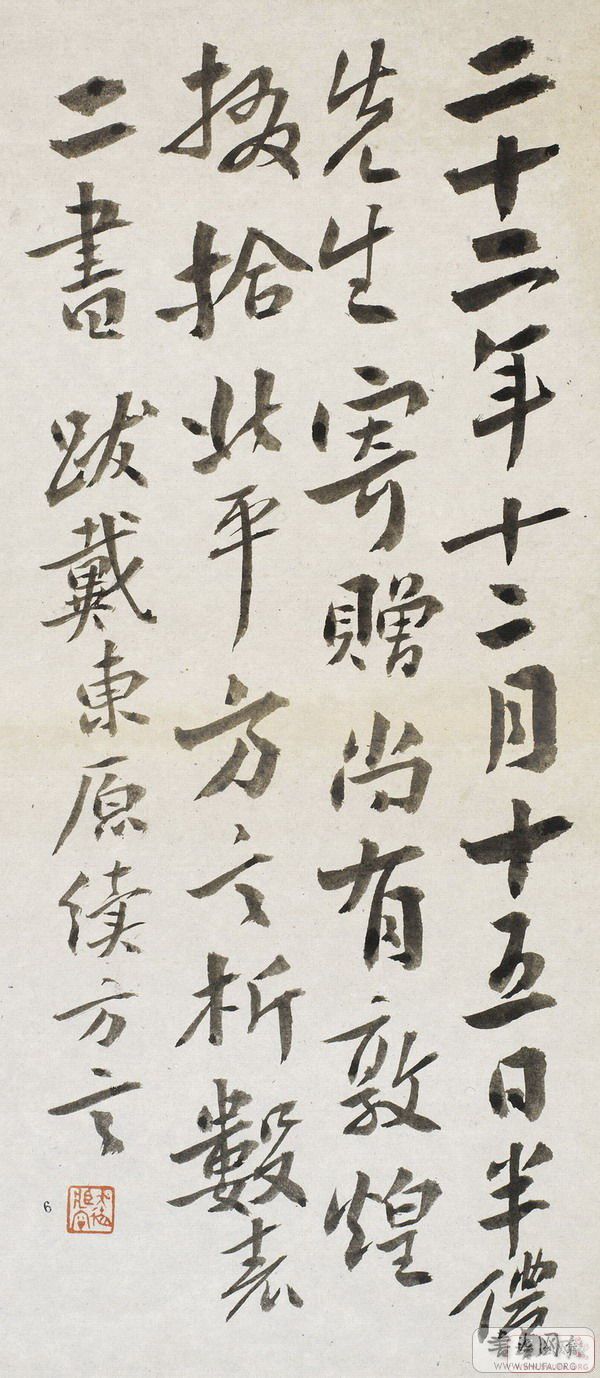 二十二年十二月十五日半儂
先生寄贈尚有敦煌
掇拾北平方言析數表
二書 跋戴東原续方言
6
WWW.SHUFA.ORG